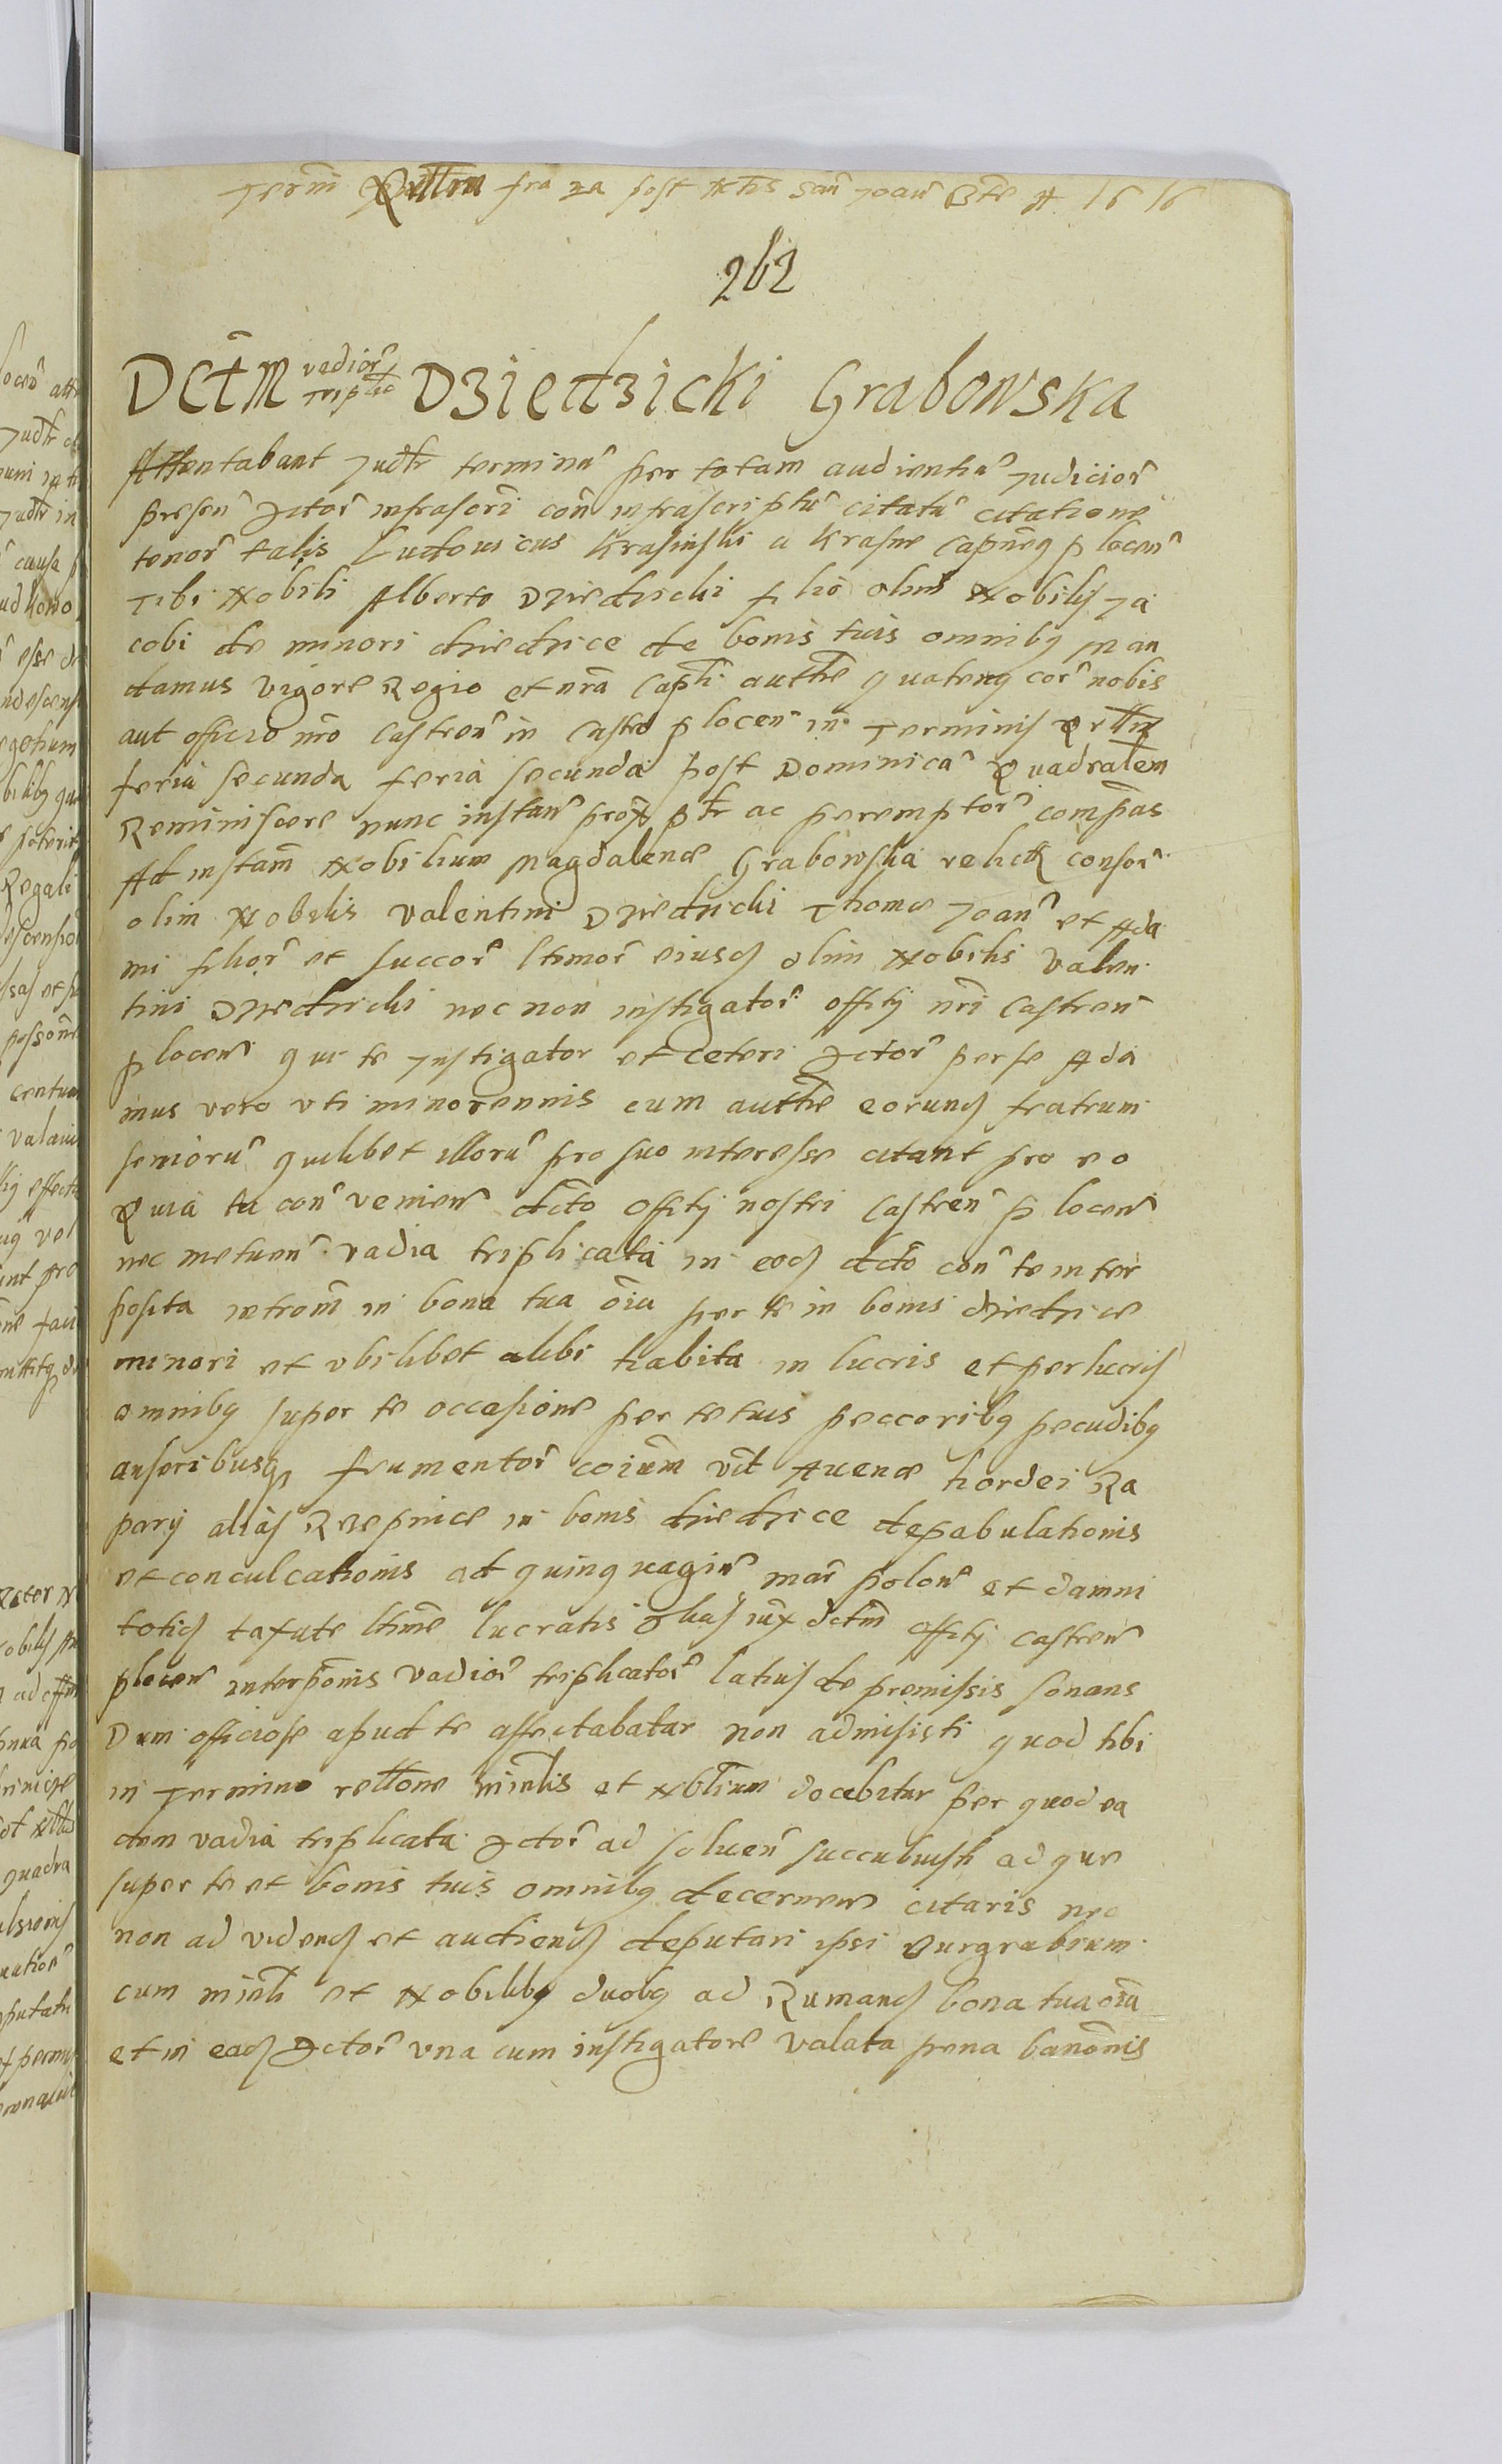 Termi Qrllm fra 2a post ftis San Joan Bte A 1616
262
Dctm vadior triplic Dziedzicki Grabowska
Attentabant Judtr terminu per totam audientia Judicior
presen Actor infrascri con infrascriptu citatu citatione
tenor talis Ludovicus Krasinski a Krasne Capneq plocen
Tibi Nobili Alberto Dziedzicki filio olim Nobilis Ja
cobi de minori dziedzice de bonis tuis omnibq man
damus vigore Regio et nra Capli authe quatenq cor nobis
aut officio nro Castren in Castro plocen in Terminis Qrllm
feria secunda feria secunda post Dominica Quadralem
Reminiscere nunc instan prox ptr ac peremptor compas
Ad instam Nobilium Magdalenæ Grabowska relictæ consor
olim Nobilis Valentini Dziedzicki Thomæ Joan et Ada
mi filior et succor ltimor eiusd olim Nobilis Valen
tini Dziedzicki nec non instigator offitij nri Castren
plocen qui te Instigator et ceteri Actor per se Ada
mus vero uti minorennis cum authe eorund fratrum
senioru quilibet illoru pro suo interesse citant pro eo
Quia tu con venien dcto offitij nostri Castren plocen
nec metuen vadia triplicata in eod dcto con te inter
posita introm in bona tua oia per te in bonis dziedzice
minori et ubilibet alibi habita in lucris et perlucris
omnibq super te occasione per te tuis peccoribq pecudibq
anseribusq frumentor coium vit Avenæ hordei Ra
parij alias Rzepnice in bonis dziedzice depabulationis
et conculcationis ad quinquagin mar polon et damni
totid taxate ltime lucratis alias iux dctm offitij castren
plocen interponis vadior triplicator latius de premissis sonans
Dum officiose apud te affectabatur non admisisti quod tibi
in Termino rellone minlis et Nbtium docebitur per quod ea
dem vadia triplicata Actor ad soluen succubuisti ad que
super te et bonis tuis omnibq decernen citaris nec
non ad videnď et audienď deputari ipsi Burgrabium
cum minli et Nobilibq duobq ad Rumanď bona tua oia
et in ead Actor una cum instigatore valata pena banonis